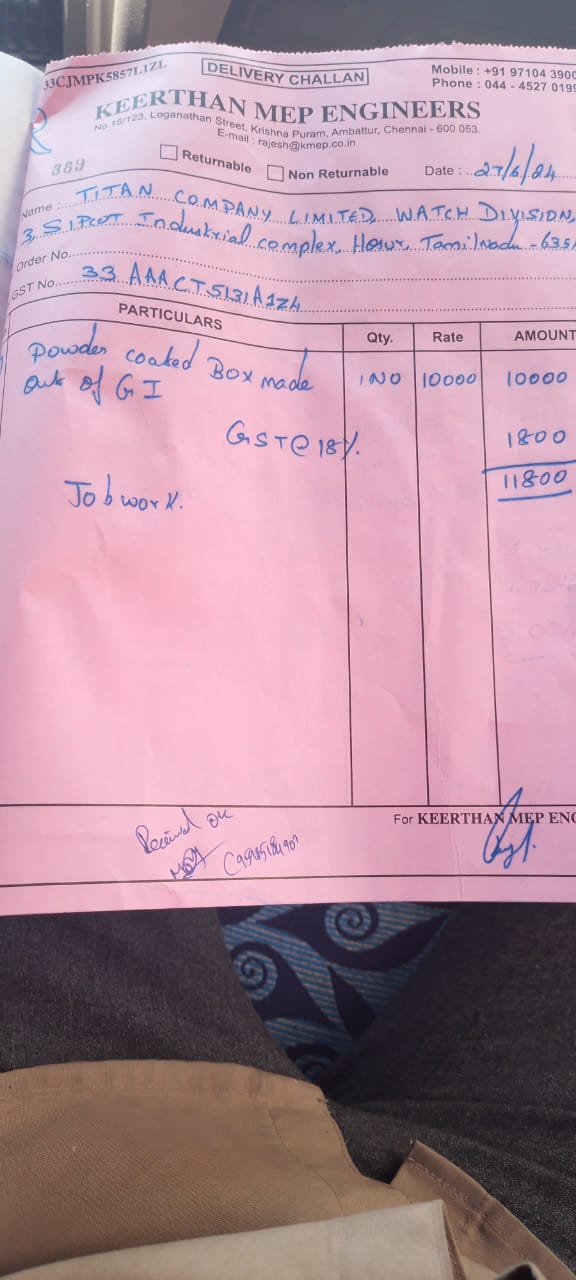 33CJMPK5857L1ZL
DELIVERY CHALLAN
Mobile : +91 97104 3900
Phone : 044 - 4527 0199
KEERTHAN MEP ENGINEERS
No 15/123, Loganathan Street, Krishna Puram, Ambattur, Chennai - 600 053.
E-mail : rajesh@kmep.co.in
389
Returnable
Non Returnable
Date : 27/6/24
Name : TITAN COMPANY LIMITED, WATCH DIVISION,
3, SIPCOT Industrial complex, Hosur, Tamilnadu - 635
Order No.
GST No. 33 AAACT5131A1Z4
PARTICULARS Qty. Rate AMOUNT
Powder coated Box made 1 NO 10000 10000
Out of GI
GST @ 18%. 1800
11800
Job work.
Received on
For KEERTHAN MEP ENG